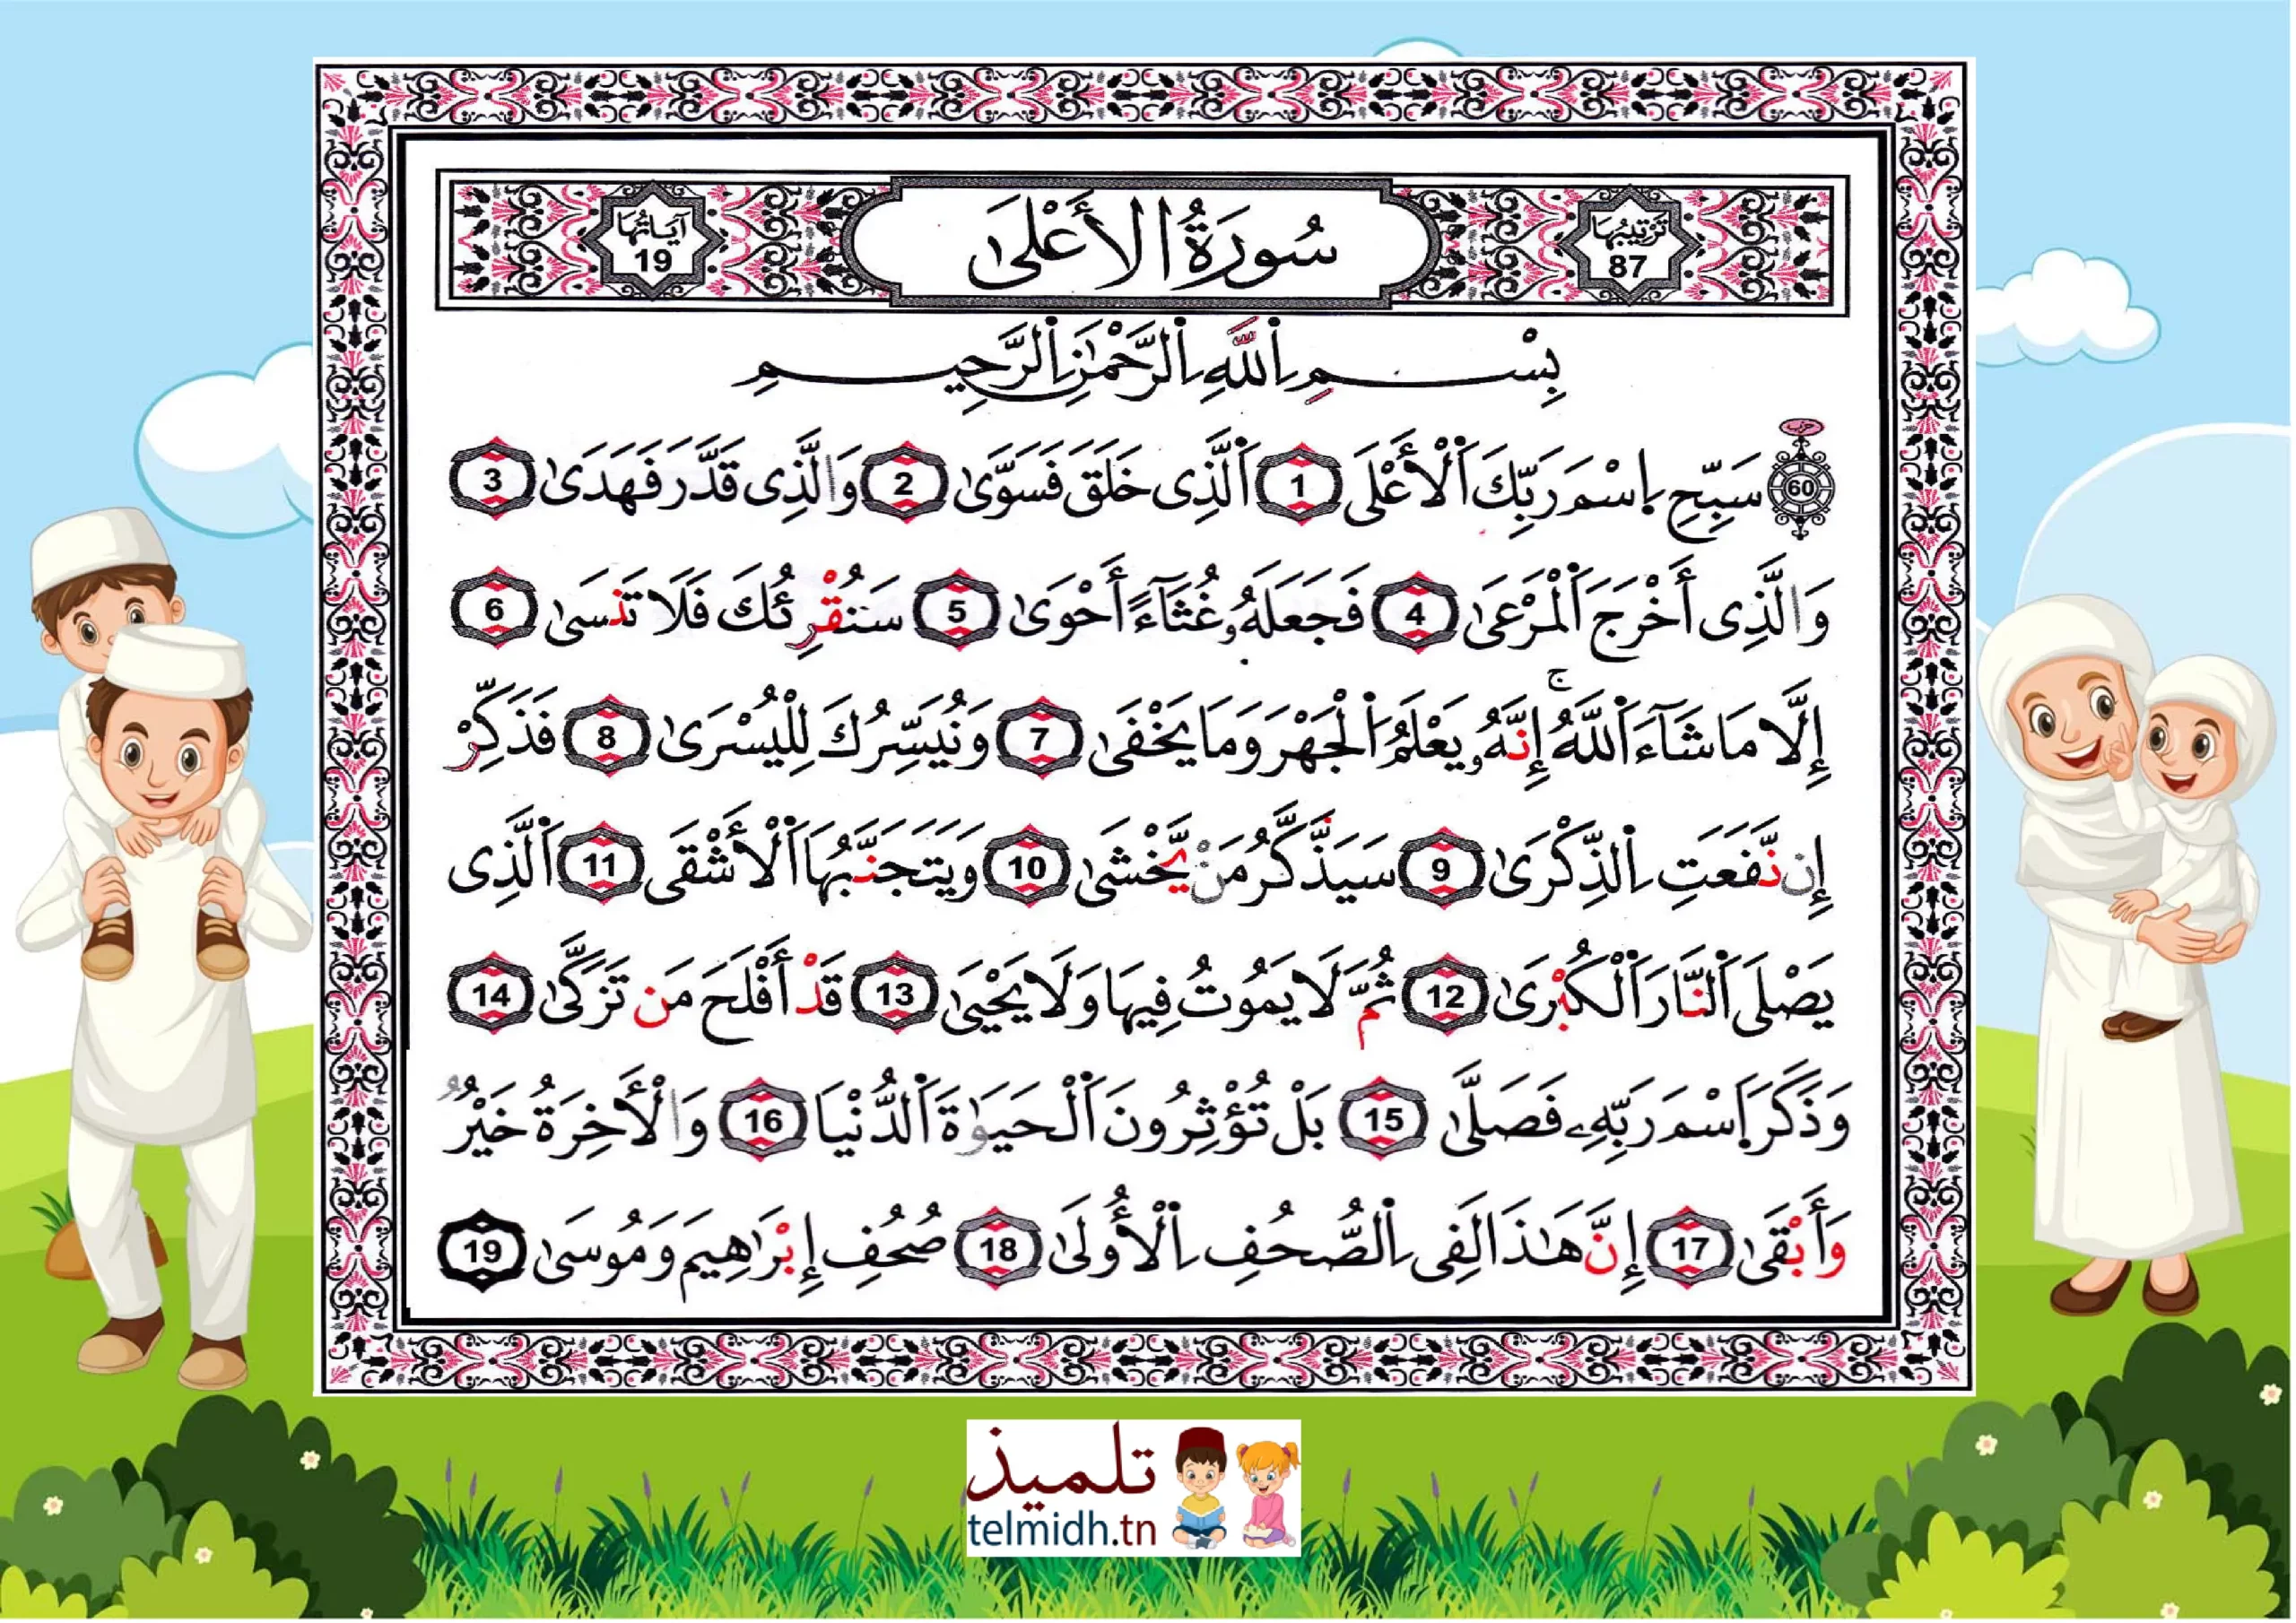 تَرْتِيبُهَا 87
سُورَةُ الأَعْلَىٰ
آيَاتُهَا 19
بِسْمِ اِللَّهِ اِلرَّحْمَٰنِ اِلرَّحِيمِ
حزب 60
سَبِّحِ اِسْمَ رَبِّكَ اَلْأَعْلَى 1 اَلَّذِى خَلَقَ فَسَوَّىٰ 2 وَالَّذِى قَدَّرَ فَهَدَىٰ 3
وَالَّذِى أَخْرَجَ اَلْمَرْعَىٰ 4 فَجَعَلَهُۥ غُثَآءً أَحْوَىٰ 5 سَنُقْرِئُكَ فَلَا تَنسَىٰ 6
إِلَّا مَا شَآءَ اَللَّهُ ۚ إِنَّهُۥ يَعْلَمُ اُلْجَهْرَ وَمَا يَخْفَىٰ 7 وَنُيَسِّرُكَ لِلْيُسْرَىٰ 8 فَذَكِّرْ
إِن نَّفَعَتِ اِلذِّكْرَىٰ 9 سَيَذَّكَّرُ مَنْ يَّخْشَىٰ 10 وَيَتَجَنَّبُهَا اَلْأَشْقَى 11 اَلَّذِى
يَصْلَى اَلنَّارَ اَلْكُبْرَىٰ 12 ثُمَّ لَا يَمُوتُ فِيهَا وَلَا يَحْيَىٰ 13 قَدْ أَفْلَحَ مَن تَزَكَّىٰ 14
وَذَكَرَ اَسْمَ رَبِّهِۦ فَصَلَّىٰ 15 بَلْ تُؤْثِرُونَ اَلْحَيَوٰةَ اَلدُّنْيَا 16 وَالْأَخِرَةُ خَيْرٌ
وَأَبْقَىٰ 17 إِنَّ هَٰذَا لَفِى اِلصُّحُفِ اِلْأُولَىٰ 18 صُحُفِ إِبْرَاهِيمَ وَمُوسَىٰ 19
تلميذ
telmidh.tn